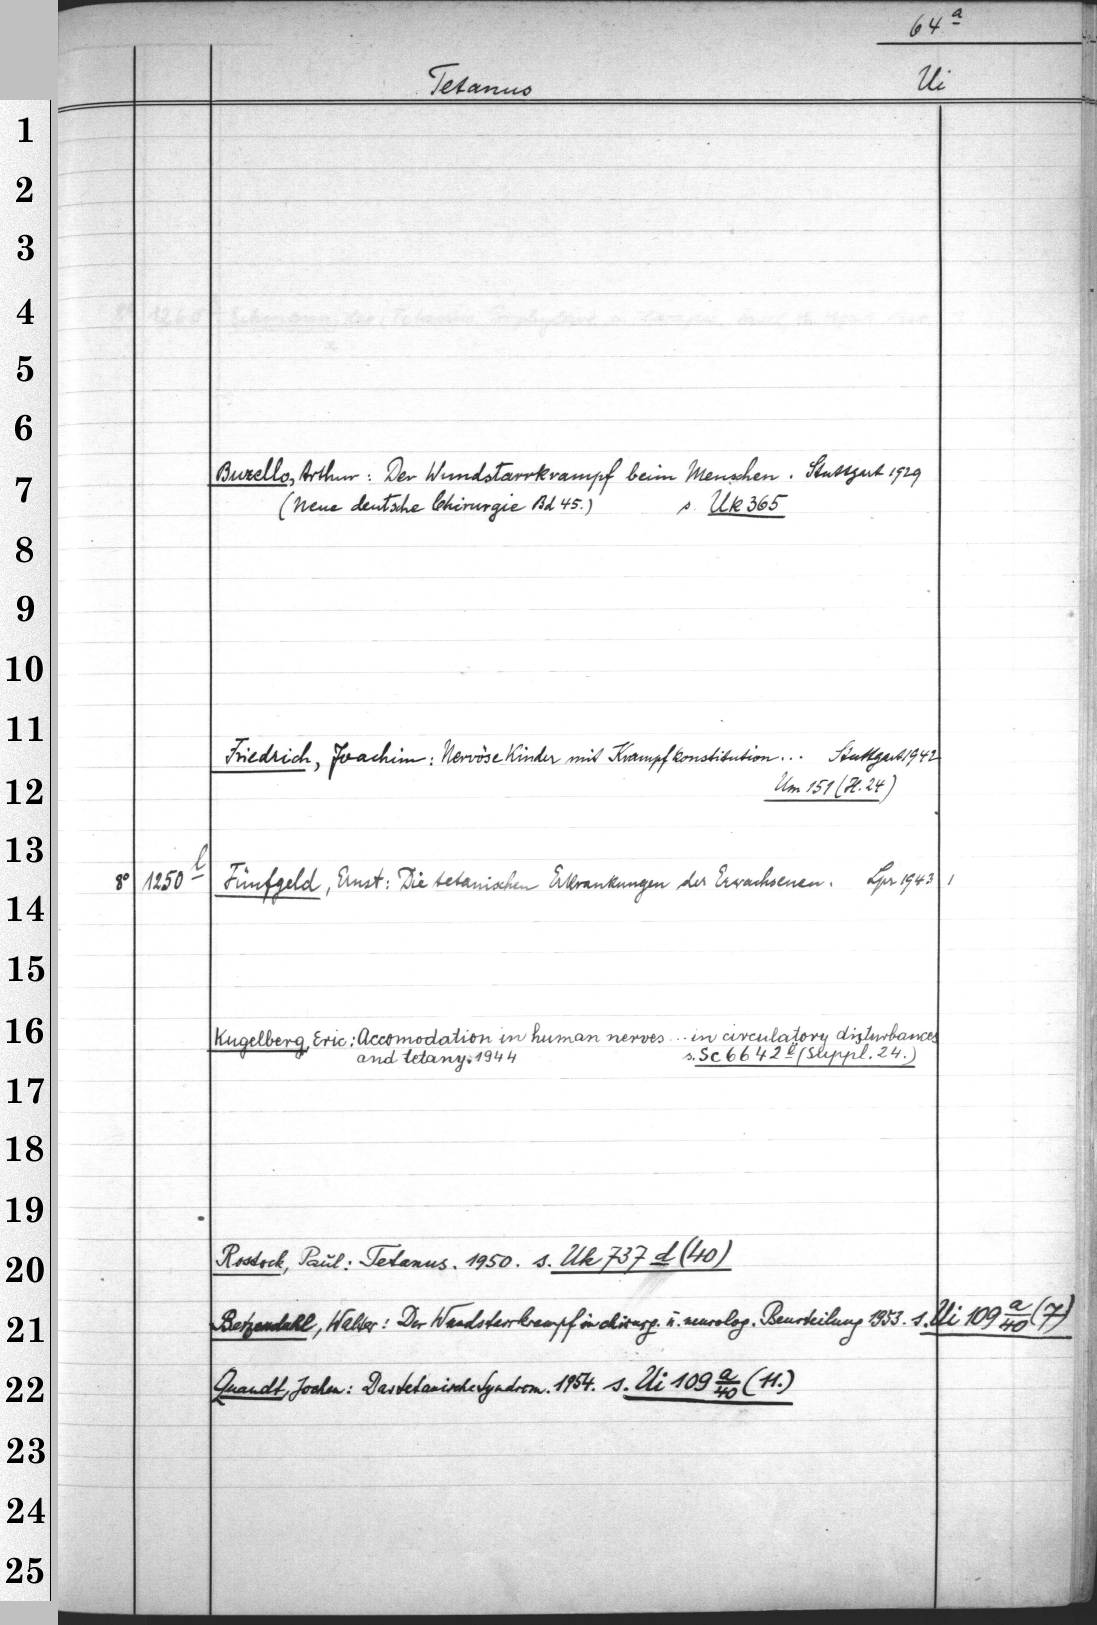 64 a
Tetanus Ui
1
2
3
4
5
6
Buzello, Arthur: Der Wundstarrkrampf beim Menschen. Stuttgart 1929
7
(Neue deutsche Chirurgie Bd 45.) s. Uk 365
8
9
10
11
Friedrich, Joachim: Nervöse Kinder mit Krampfkonstitution... Stuttgart 1942
12 Um 151 (H. 24)
13
8° 1250 l Fünfgeld, Ernst: Die tetanischen Erkrankungen der Erwachsenen. Lpz 1943 1
14
15
16 Kugelberg, Eric: Accomodation in human nerves... in circulatory disturbances
and tetany. 1944 s. Sc 6642 (Suppl. 24.)
17
18
19
20 Rostock, Paul: Tetanus. 1950. s. Uk 737 d (40)
21 Betzendahl, Walter: Der Wundstarrkrampf in chirurg. u. neurolog. Beurteilung 1953. s. Ui 109 a/40 (7)
22 Quandt, Jochen: Das tetanische Syndrom. 1954. s. Ui 109 a/40 (11.)
23
24
25